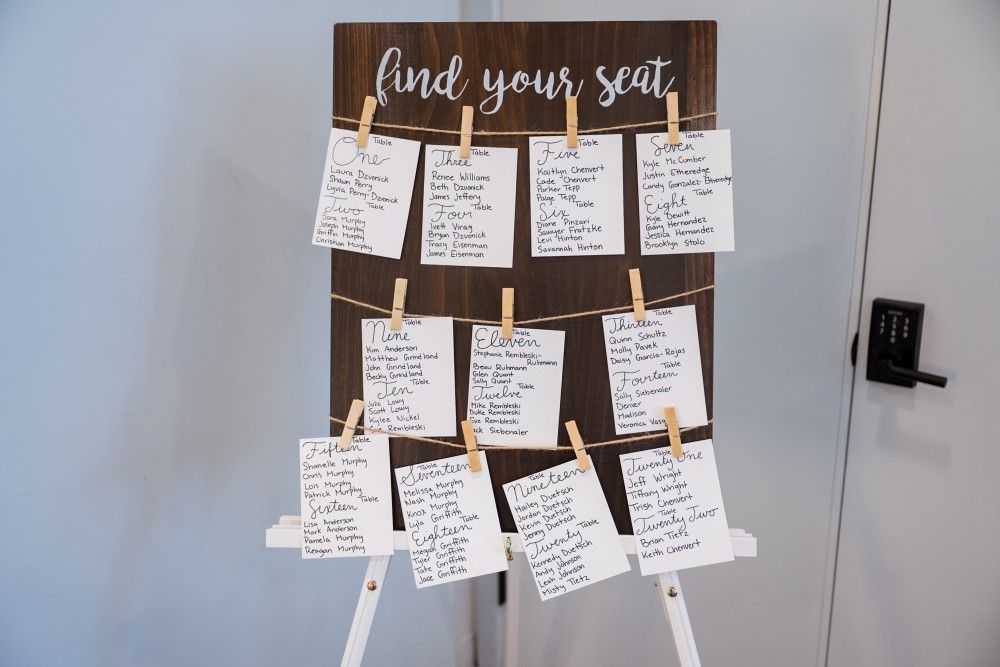 find your seat
Table
One
Laura Dzvonick
Shawn Perry
Lyvia Perry-Dzvonick
Table
Two
Sara Murphy
Joseph Murphy
Griffin Murphy
Christian Murphy
Table
Three
Renee Williams
Beth Dzvonick
James Jeffery
Table
Four
Ivett Virag
Bryan Dzvonick
Tracy Eisenman
James Eisenman
Table
Five
Kaitlyn Chenvert
Cade Chenvert
Parker Tepp
Paige Tepp
Table
Six
Diane Pinzari
Sawyer Fratzke
Levi Hinton
Savannah Hinton
Table
Seven
Kyle McCumber
Justin Etheredge
Candy Gonzalez Etheredge
Table
Eight
Kyle Dewitt
Hernandez
Jessica Hernandez
Brooklyn Stolo
Table
Nine
Kim Anderson
Matthew Grindland
John Grindland
Becky Grindland
Table
Ten
Julie Lowy
Scott Lowy
Kylee Nickel
Rembleski
Table
Eleven
Stephanie Rembleski-
Ruhmann
Beau Ruhmann
Glen Quant
Sally Quant
Table
Twelve
Mike Rembleski
Duke Rembleski
Rembleski
Siebenaler
Table
Thirteen
Quinn Schultz
Molly Pavek
Daisy Garcia-Rojas
Table
Fourteen
Sally Siebenaler
Denver
Madison
Veronica
Table
Fifteen
Shanelle Murphy
Chris Murphy
Lois Murphy
Patrick Murphy
Table
Sixteen
Lisa Anderson
Mark Anderson
Pamela Murphy
Reagan Murphy
Table
Seventeen
Melissa Murphy
Nash Murphy
Knox Murphy
Lyla Griffith
Table
Eighteen
Megan Griffith
Tyler Griffith
Tate Griffith
Jace Griffith
Table
Nineteen
Hailey Duetsch
Jordan Duetsch
Kevin Duetsch
Jenny Duetsch
Table
Twenty
Kennedy Duetsch
Andy Johnson
Leah Johnson
Misty Tietz
Table
Twenty One
Jeff Wright
Tiffany Wright
Trish Chenvert
Table
Twenty Two
Brian Tietz
Keith Chenvert